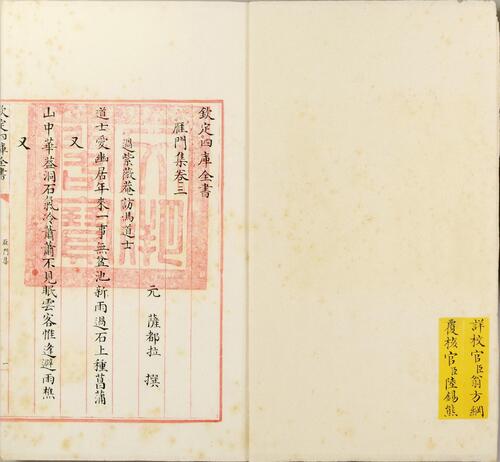 詳校官臣翁方綱
覆核官臣陸錫熊
欽定四庫全書
雁門集卷三
元 薩都拉 撰
過紫薇菴訪馮道士
道士愛幽居年來一事無盆池新雨過石上種菖蒲
又
山中華蓋洞石氣冷蕭蕭不見眠雲客惟逢避雨樵
又
欽定四庫全書
雁門集
一